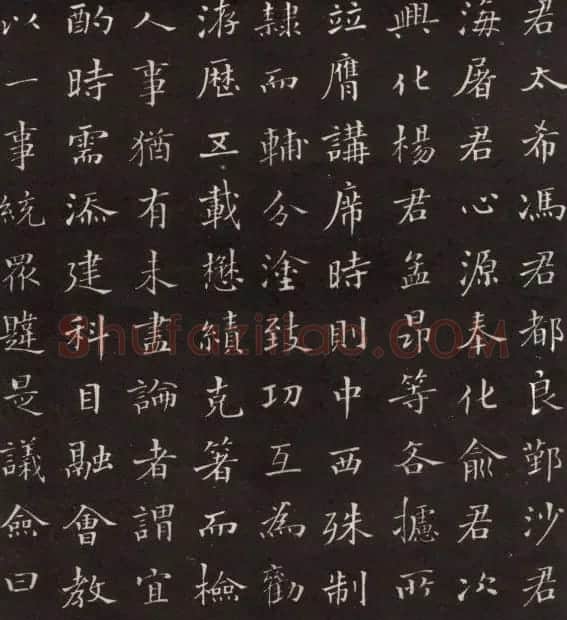 君太希馮君都良鄞沙君
海屠君心源奉化俞君次
興化楊君孟昂等各攄所
竝膺講席時則中西殊制
隸而輔分塗致功互為勸
洊歷五載懋績克著而檢
人事猶有未盡論者謂宜
酌時需添建科目融會教
以一事統眾韙是議僉曰
Shufaziliao.COM